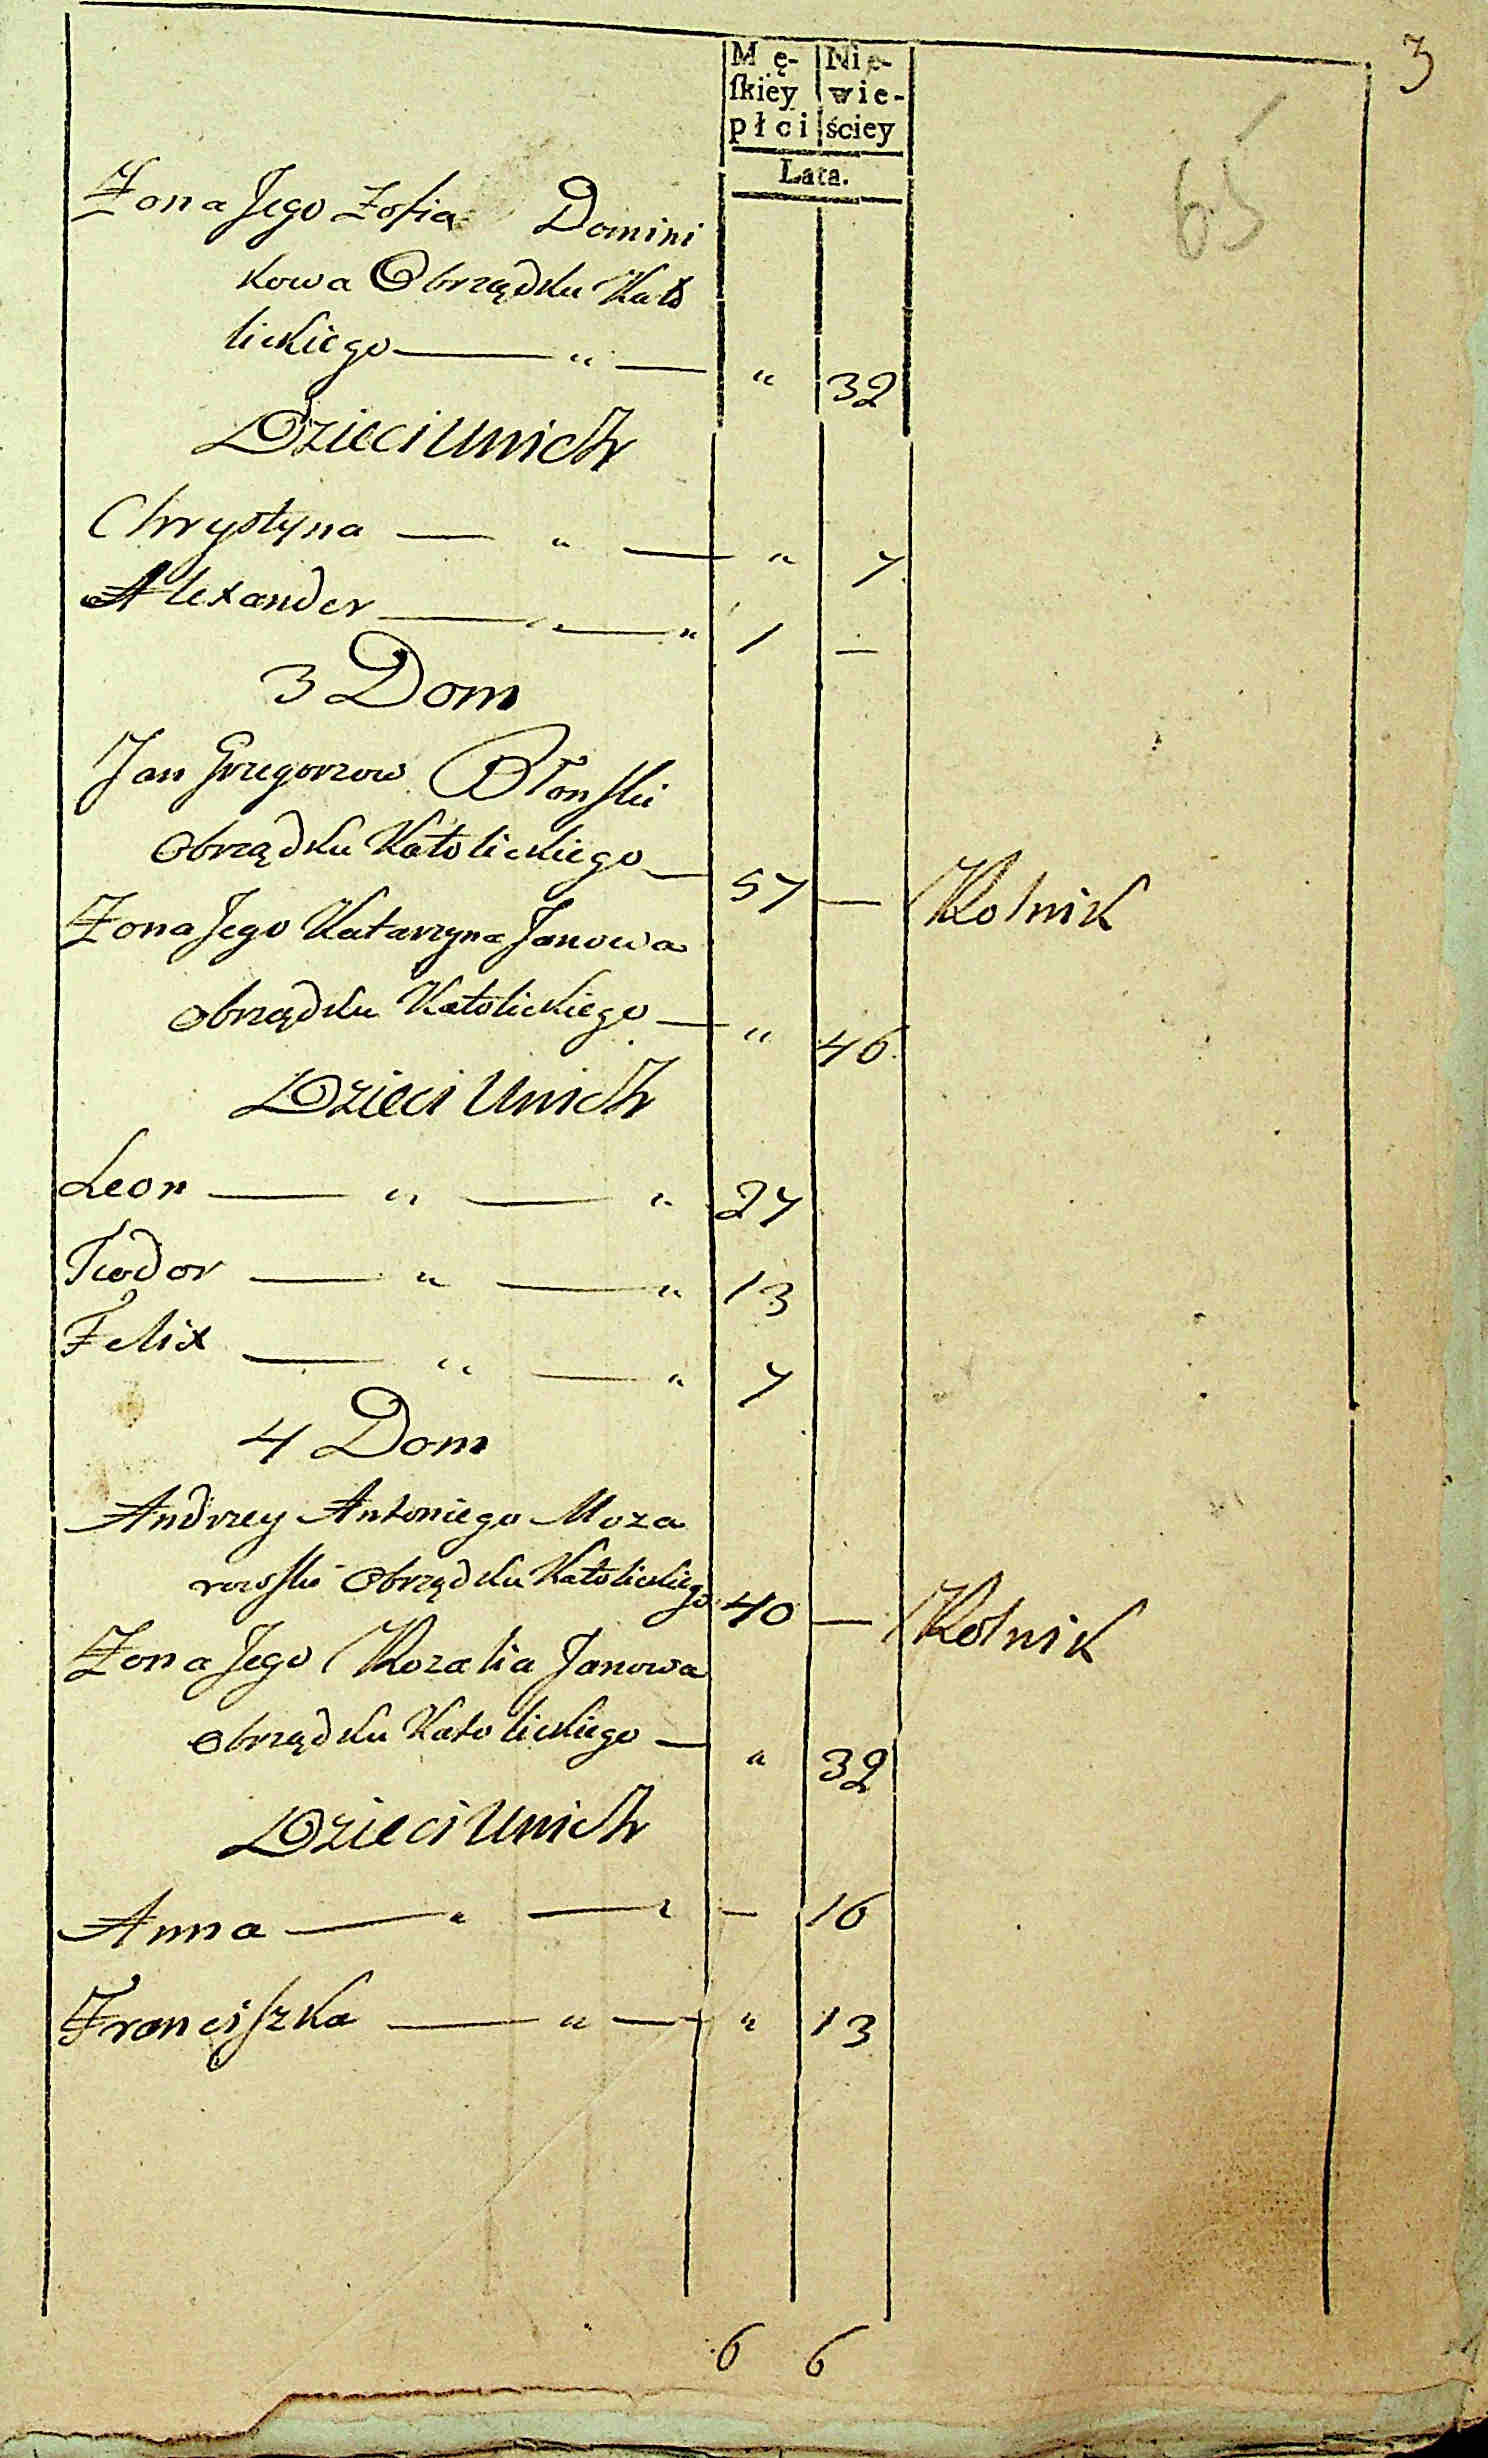 3
65
Mę- Nie-
ſkiey wie-
płci ściey
Lata.
Żona Jego Zofia Domini
kowa Obrządku Kato
lickiego — " — " 32
Dzieci Unich
Chrystyna — " — " 7
Alexander — " — " 1 —
3 Dom
Jan Grzegorzow Błonſki
Obrządku Katolickiego — 57 — Rolnik
Żona Jego Katarzyna Janowa
Obrządku Katolickiego — " 46
Dzieci Unich
Leon — " — " 27
Teodor — " — " 13
Felix — " — " 7
4 Dom
Andrzey Antoniego Moza
rowſki Obrządku Katolickiego 40 — Rolnik
Żona Jego Rozalia Janowa
Obrządku Katolickiego — " 32
Dzieci Unich
Anna — " — " — 16
Franciſzka — " — " 13
6 6